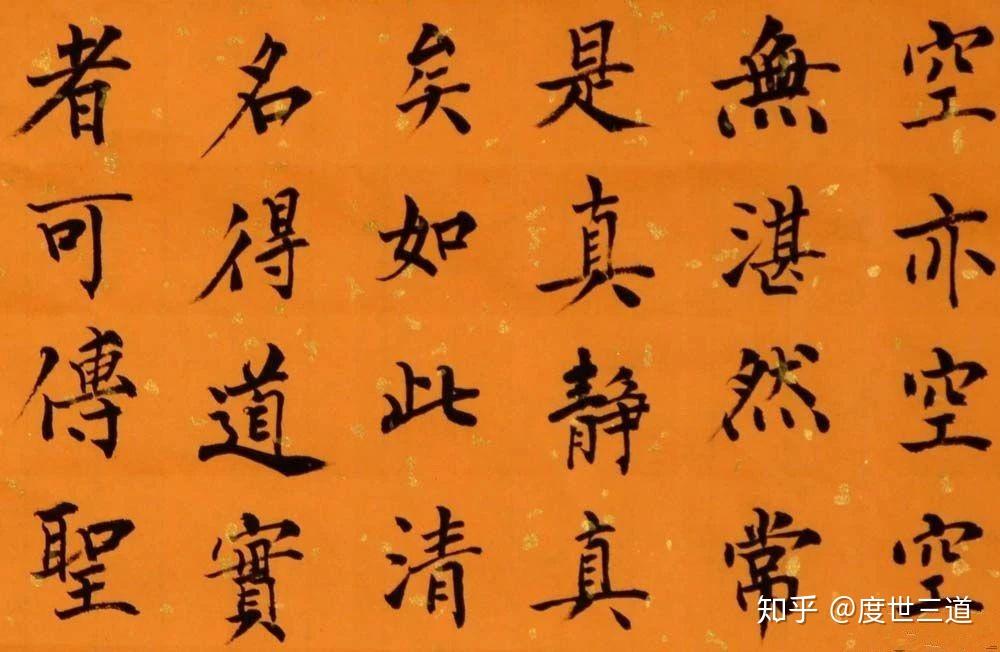 空亦空空
無湛然常
是真静真
矣如此清
名得道實
者可傳聖
知乎 @度世三道